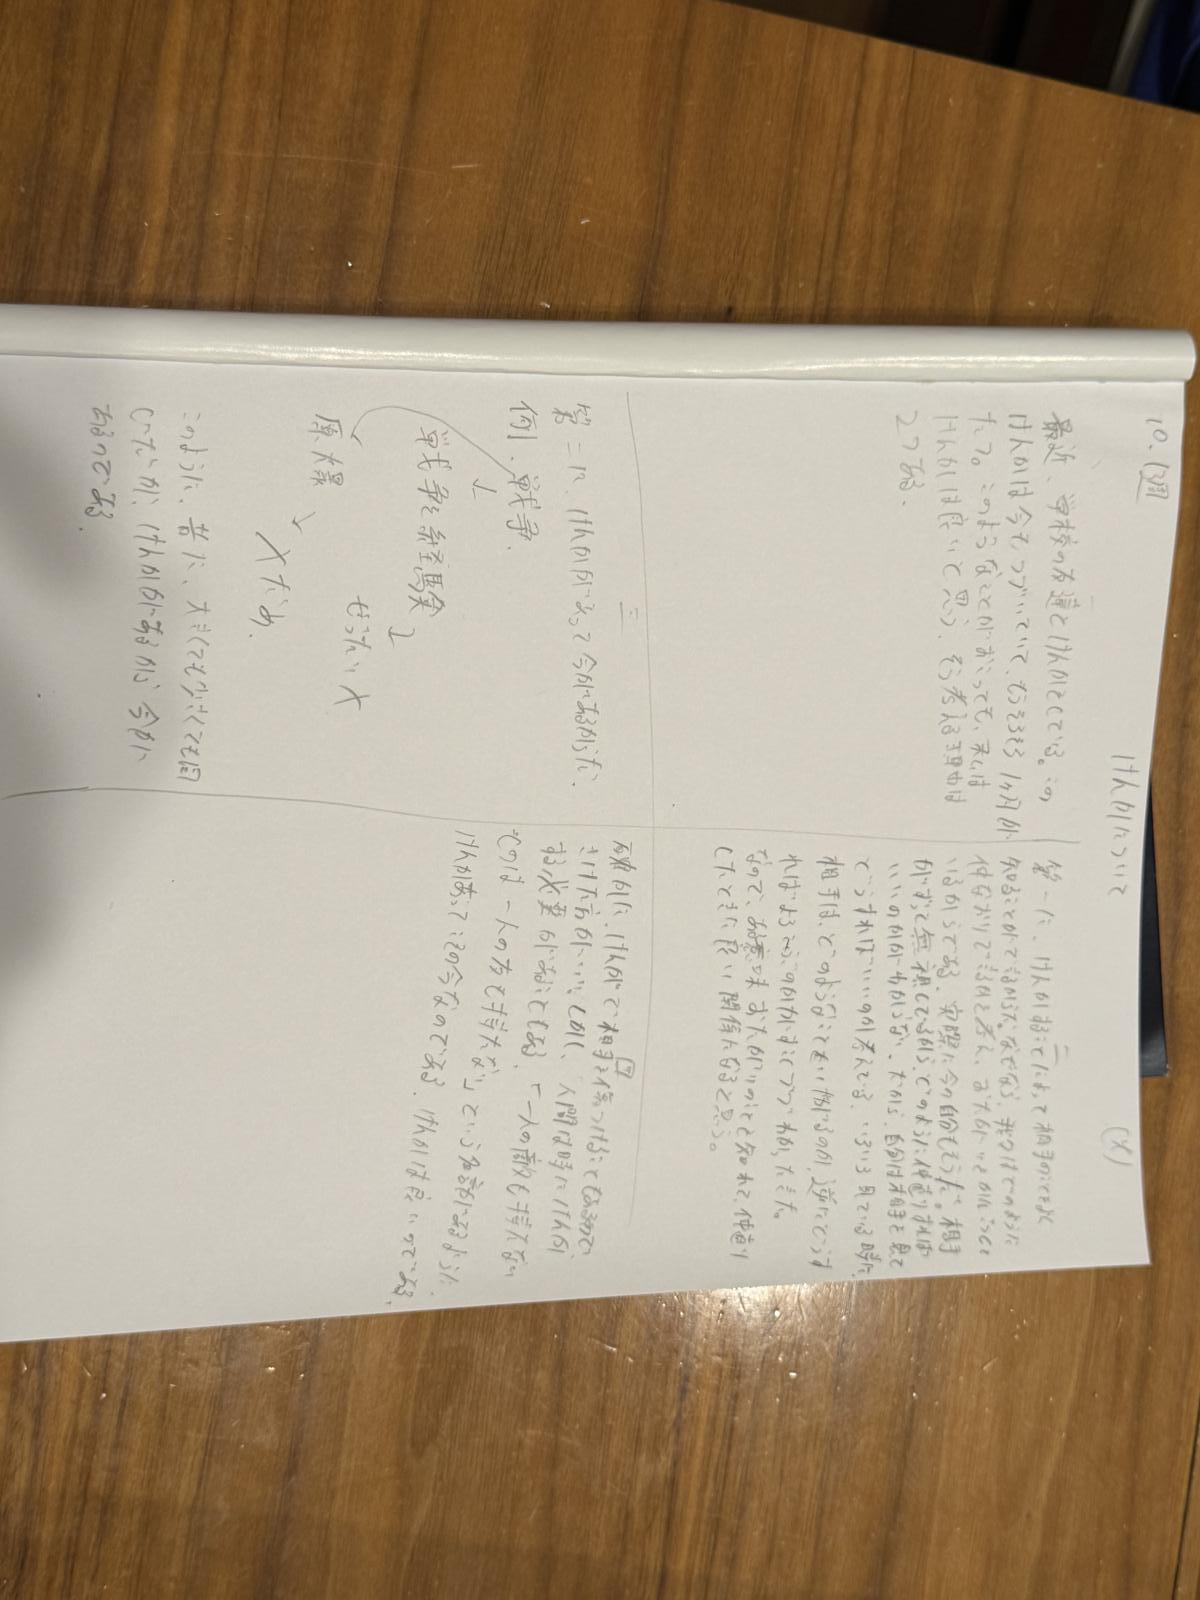 10. (3週
けんかについて
(X)
最近、学校の友達とけんかをしている。この
けんかは今もつづいていて、そろそろ1ヶ月が
たつ。このようなことがおこっても、私は
けんかは良いと思う。そう考える理由は
2つある。
第一に、けんかすることによって相手のことをよく
知ることができるからだ。なぜなら、
仲なおりできるかと考え、
いるからである。実際に今の自分もそうだ。相手
がずっと無視してくるから、どのように仲直りすれば
いいのかが分からない。だから、自分は相手を見て
どうすればいいのか考えている。いろいろ見ている時に
相手は、どのようなことをいやがるのか、逆にどうす
ればよろこぶのかがすこしづつ分かったきた。
なので、お互いのことを知れて、仲直り
したときに良い関係になると思う。
二
第二に、けんかがあって今があるからだ。
例. 戦争.
↓
戦争を経験
ぜったい×
原爆
×だめ.
このように、昔に、大きくても小さくても同
じで、けんかがあるから今が
あるのである。
確かに、けんかで相手を傷つけることもあるので
さけた方がいい。しかし、人間は時にけんかが
する必要があることもある。「一人の敵も作らない
人は一人の友も作れない」という名言があるように、
けんかあってこその今なのである。けんかは良いのである。